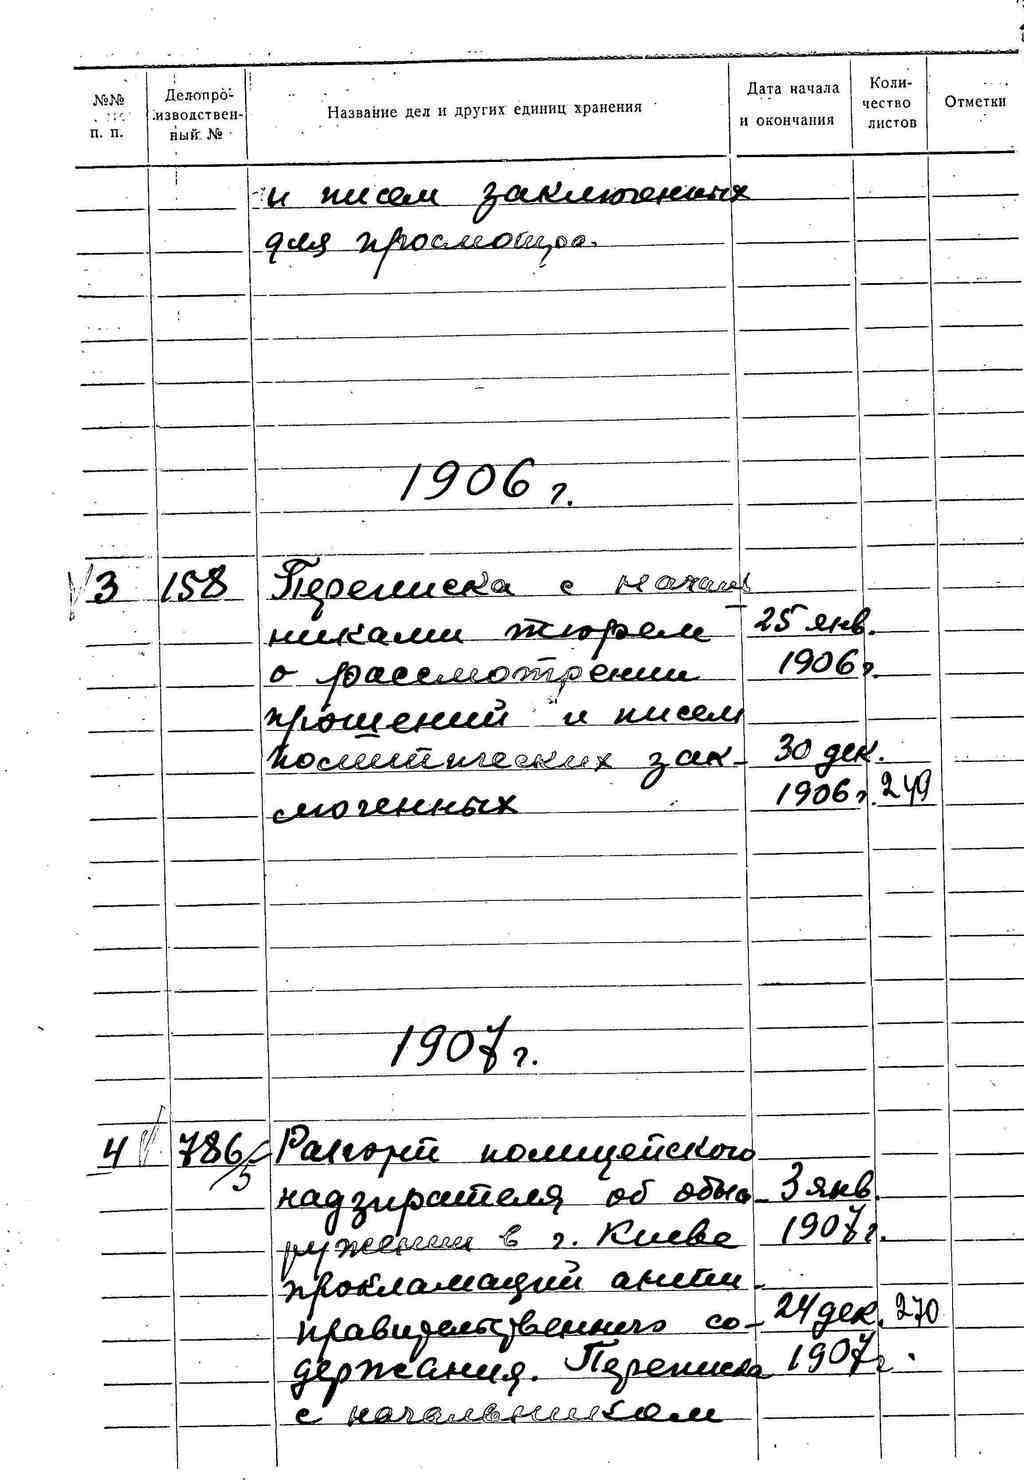 №№ по п. п.
Делопроизводственный №
Название дел и других единиц хранения
Дата начала и окончания
Количество листов
Отметки
и писем заключенных
для просмотра.
1906 г.
3 158 Переписка с началь
никами тюрем 25 янв.
о рассмотрении 1906 г.
прошений и писем
политических зак- 30 дек.
люченных 1906 г. 249
1907 г.
4 786/5 Рапорт полицейского
надзирателя об обна- 3 янв.
ружении в г. Киеве 1907 г.
прокламаций анти-
правительственного со- 24 дек. 270
держания. Переписка 1907 г.
с начальником